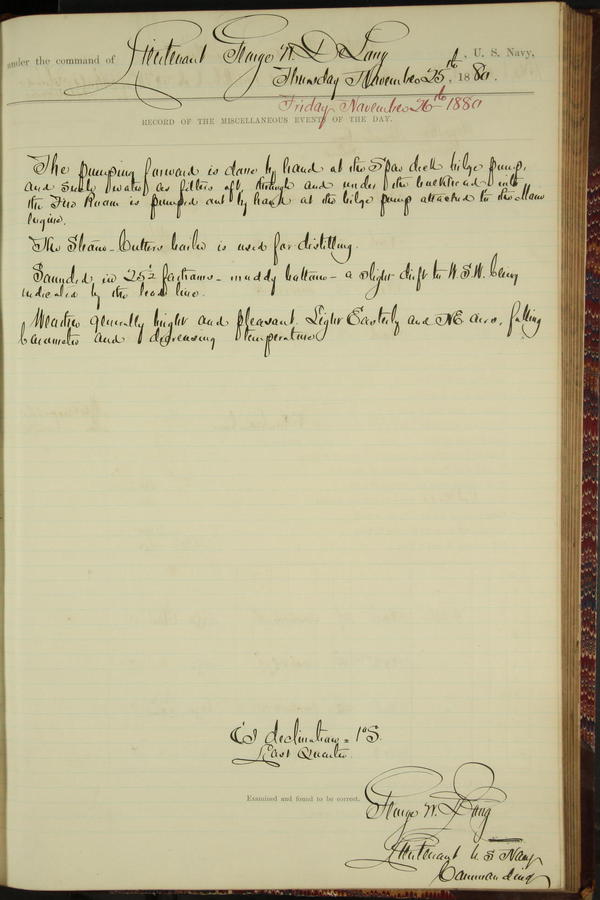 under the command of Lieutenant George W. De Long, U. S. Navy,
Thursday November 25th, 1880.
Friday November 26th 1880
RECORD OF THE MISCELLANEOUS EVENTS OF THE DAY.
The pumping forward is done by hand at the Spar deck bilge pump,
and such water as filters aft through and under the bulkhead into
the Fire Room is pumped out by hand at the bilge pump attached to the Main
Engine.
The Steam-Cutters boiler is used for distilling.
Sounded in 25½ fathoms - muddy bottom - a slight drift to W.S.W. being
indicated by the lead line.
Weather generally bright and pleasant. Light Easterly and NE airs, falling
barometer and decreasing temperature
declination = 1° S.
Last Quarter.
Examined and found to be correct.
George W. De Long
Lieutenant U S Navy
Commanding